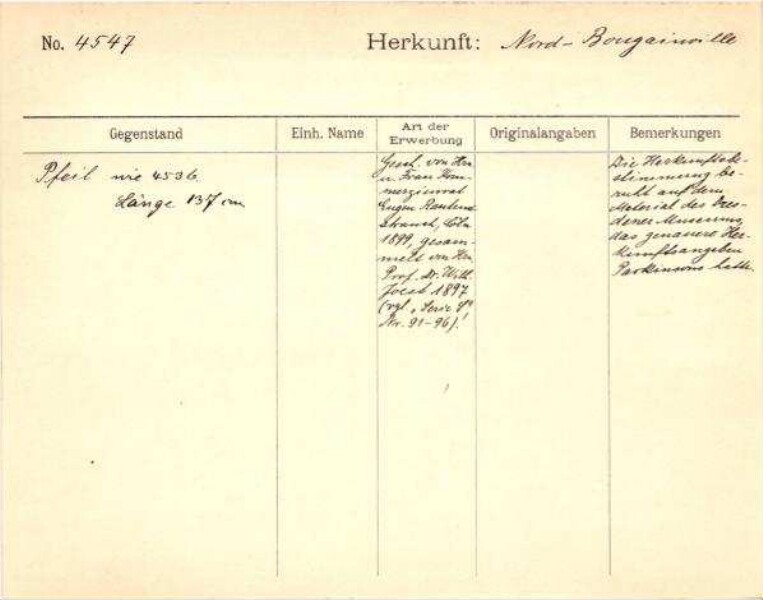 No. 4547
Herkunft: Nord-Bougainville
Gegenstand
Einh. Name
Art der
Erwerbung
Originalangaben
Bemerkungen
Pfeil wie 4536
Länge 137 cm
Gesch. von Hrn
u. Frau Kom-
merzienrat
Eugen Rauten-
strauch, Cöln
1899, gesam-
melt von Hrn
Prof. Dr. Wilh.
Joest 1897
(vgl. „Serie
Nr. 91-96)!
Die Herkunftsbe-
stimmung be-
ruht auf dem
Material des Dres-
dener Museums,
das genauere Her-
kunftsangaben
Parkinsons hatte.